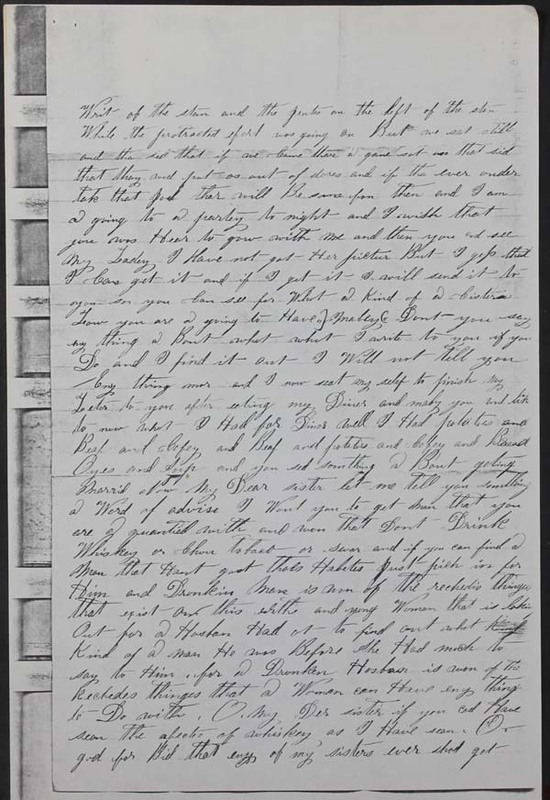 Writ of the stan and the on the left of the stan
While the protracted efort was going on But we set still
and tha sed that if we Came thare a gane sat on that sid
that thay wod put os out of dores and if tha ever onder
tak that god ther will Be some fun then and I am
a going to a partey to night and I wish that
you was Heer to gow with me and then you cod see
My Ladey I Have not got Her picter But I gess that
I Can get it and if I get it I will send it to
you so you Can see for What a Kind of a Cister
Law you are a going to Have Dont you say
eny thing a Bout what what I write to you if you
Do and I find it out I Will not tell you
Eny thing mor and I now seat my self to finish my
Leter to you after eating my Diner and maby you wod like
to now what I Had for Diner well I Had potatoes and
Beaf and Cofey and Beaf and potatoes and Cofey and Bread
and and you sed somthing a Bout geting
marrid now My Dear sister let me tell you somthing
a Word of advise I Want you to get a man that you
are a quanted with and won that Dont Drink
Whiskey or Chew tobaco or swar and if you can find a
Man that Hant got thats Habites just pich in for
Him and Dronkin Man is won of the rechedis things
that exist on this earth and yong Woman that is Lokin
Out for a Hosban Had ot to find out what
Kind of a man He was Before she Had much to
say to Him for a Dronken Hosban is won of the
Rechedes thinges that a Woman can Have eny thing
to Do with . O. My Der sister if you cod Have
seen the afects of whiskey as I Have seen. O.
god for Bid that eny of my sisters ever shod get